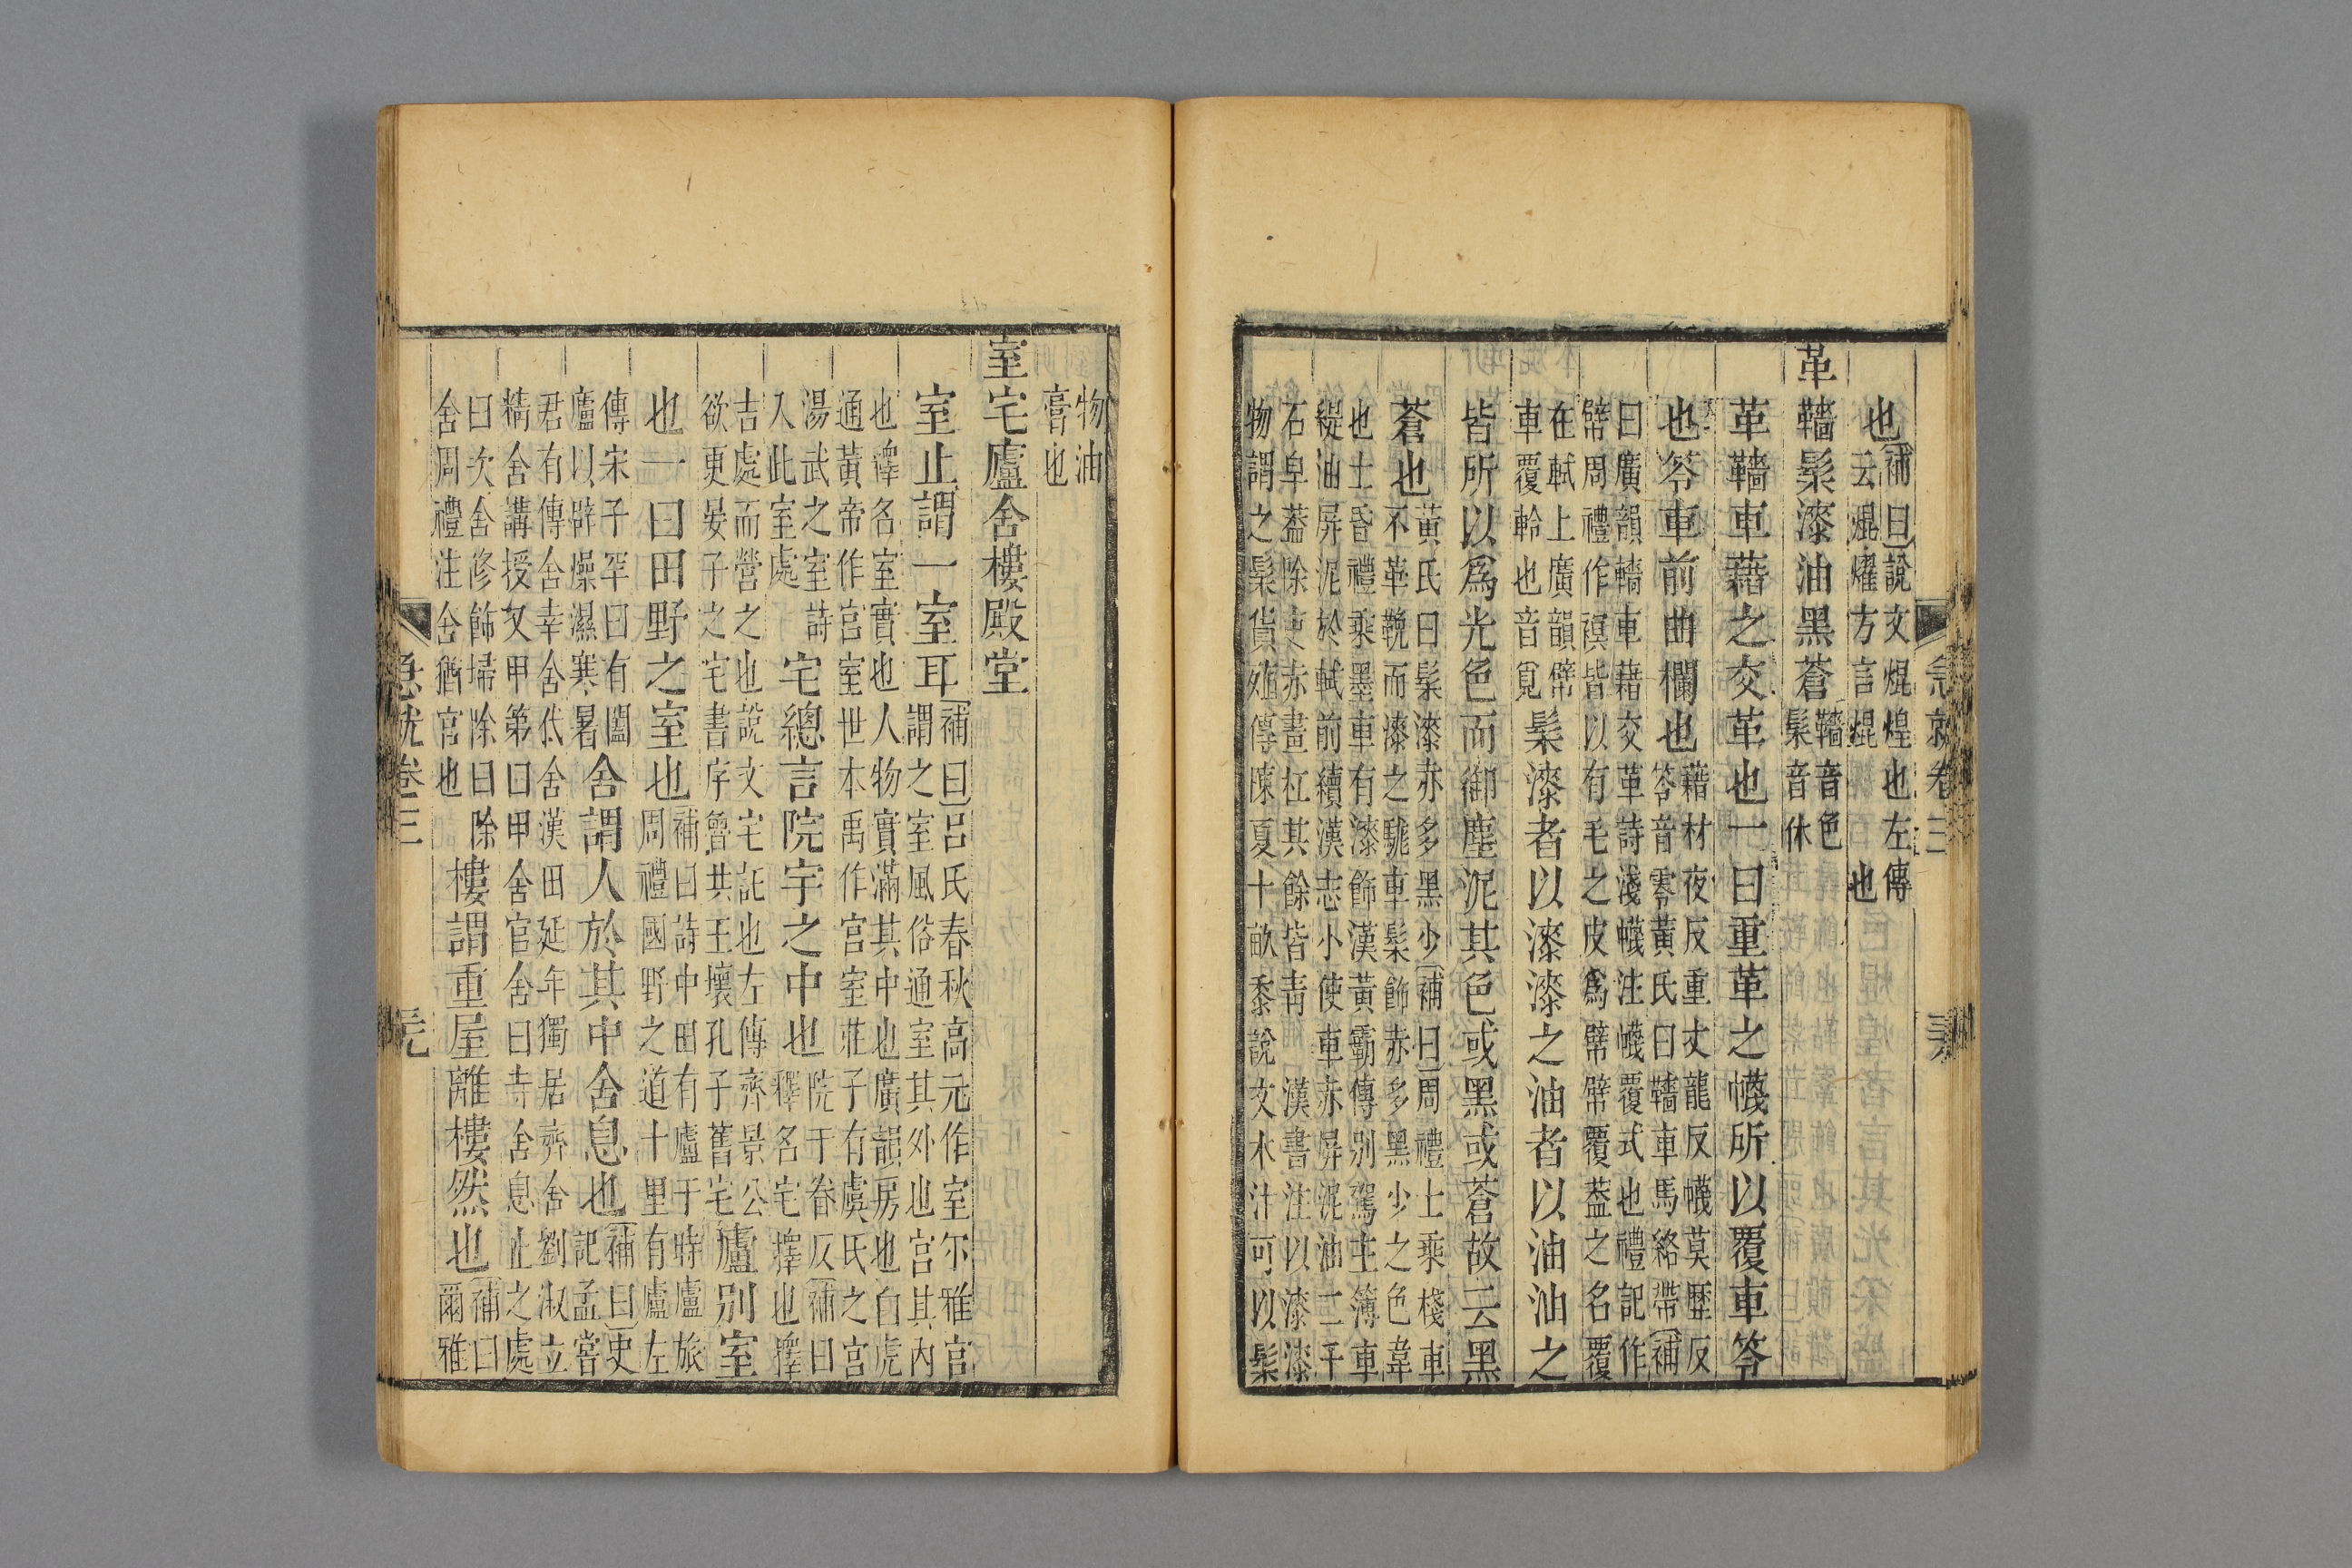 急就卷三
也補曰說文焜煌也左傳
云焜燿方言焜也
革轖髤漆油黑蒼轖音色
髤音休
革轖車藉之交革也一曰重革之幭所以覆車笭
也笭車前曲欄也藉材夜反重丈龍反幭莫歷反
笭音零黃氏曰轖車馬絡帶補
曰廣韻轖車藉交革詩淺幭注幭覆式也禮記作
幦周禮作䙪皆以有毛之皮為幦幦覆葢之名覆
在軾上廣韻幦
車覆軨也音覓髤漆者以漆漆之油者以油油之
皆所以為光色而御塵泥其色或黑或蒼故云黑
蒼也黃氏曰髤漆赤多黑少補曰周禮士乘棧車
不革鞔而漆之駹車髤飾赤多黑少之色韋
也士昏禮乘墨車有漆飾漢黃霸傳別駕主簿車
緹油屏泥於軾前續漢志小使車赤屏泥油二千
石皁葢除吏赤畫杠其餘皆青漢書注以漆漆
物謂之髤貨殖傳陳夏十畝黍說文木汁可以髤
物油
膏也
室宅廬舍樓殿堂
室止謂一室耳補曰呂氏春秋高元作室尓雅宫
謂之室風俗通室其外也宫其內
也釋名室實也人物實滿其中也廣韻房也白虎
通黃帝作宫室世本禹作宫室莊子有虞氏之宫
湯武之室詩
入此室處宅總言院宇之中也院于眷反補曰
釋名宅擇也擇
吉處而營之也說文宅託也左傳齊景公
欲更晏子之宅書序魯共王壞孔子舊宅廬別室
也一曰田野之室也補曰詩中田有廬于時廬旅
周禮國野之道十里有廬左
傳宋子罕曰有闔
廬以辟燥濕寒暑舍謂人於其中舍息也補曰史
記孟嘗
君有傳舍幸舍代舍漢田延年獨居齊舍劉淑立
精舍講授又甲第曰甲舍官舍曰寺舍息止之處
曰次舍修飾埽除曰除
舍周禮注舍猶官也樓謂重屋離樓然也補曰
爾雅
急就卷三